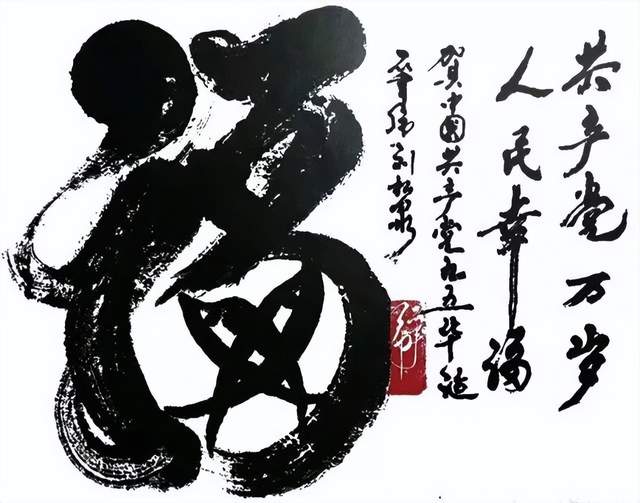 共产党万岁
人民幸福
贺中国共产党九五华诞
刘松泉
福